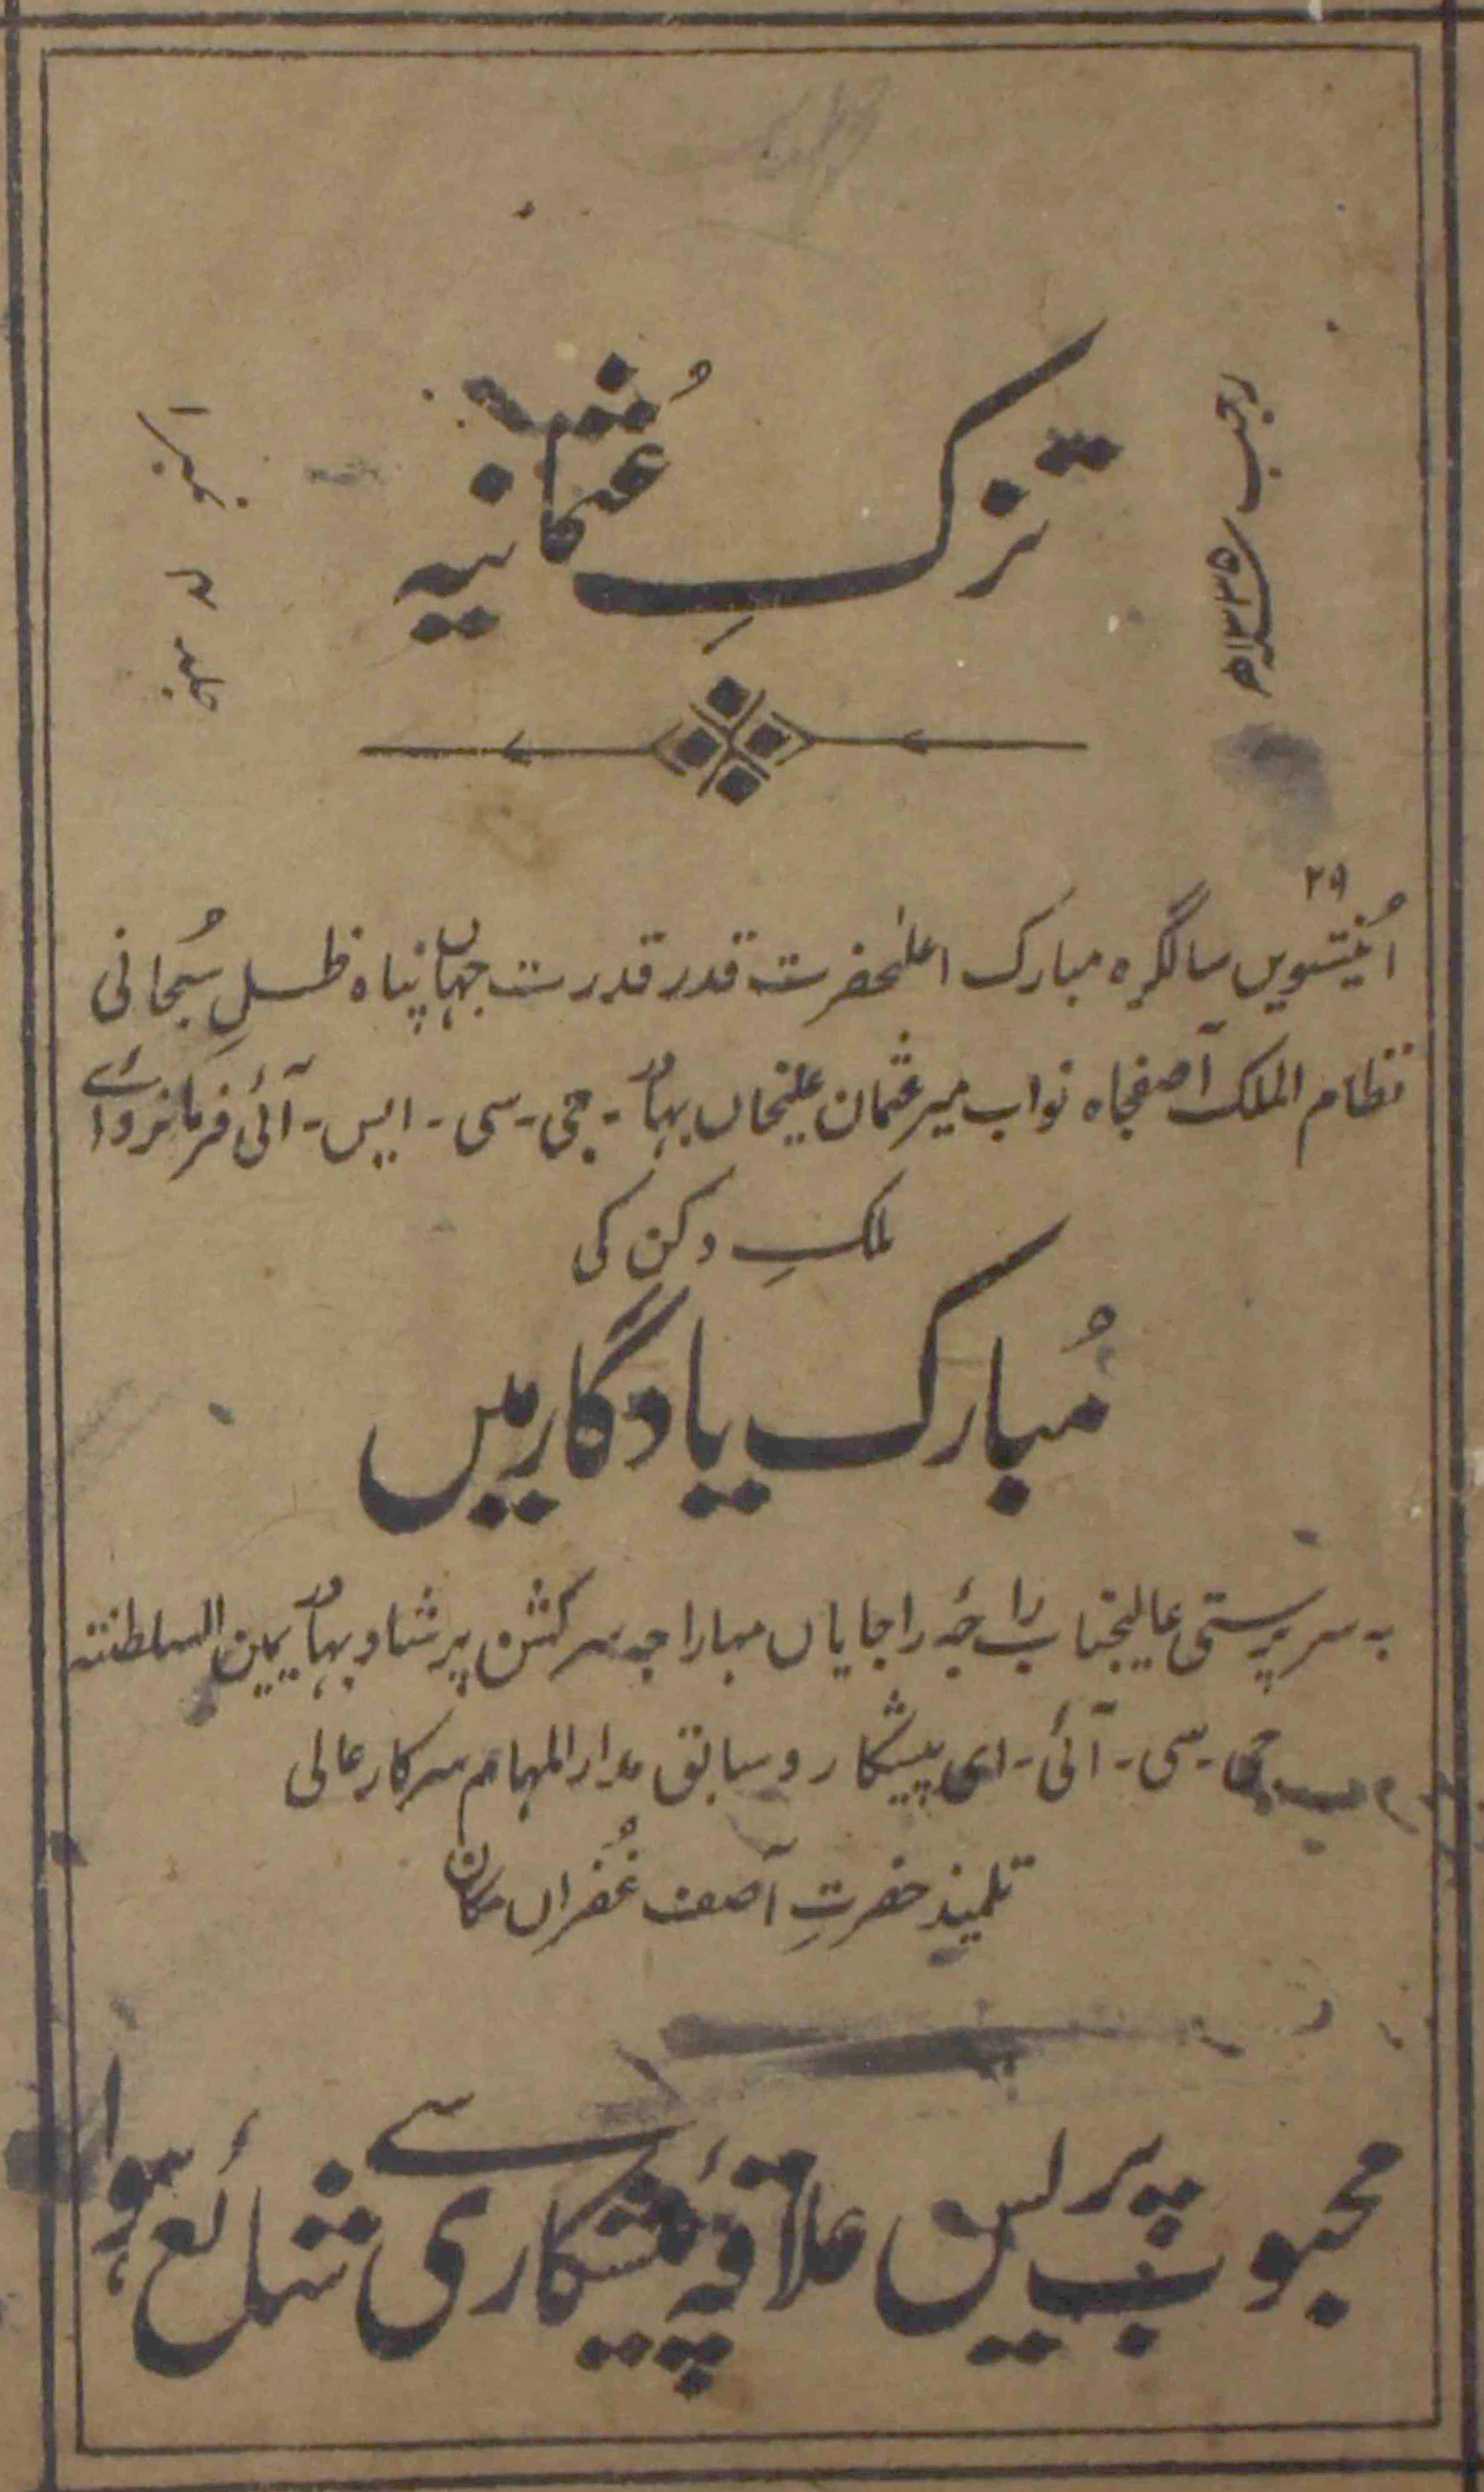 تزکِ عُثمانیہ
رجب ۱۳۳۵ھ
جلد ۳ نمبر ۱
۲۹
اُنتیسویں سالگرہ مبارک اعلٰحضرت قدر قدرت جہاں پناہ ظلِ سُبحانی
نظام الملک آصفجاہ نواب میر عثمان علیخاں بہادر - جی - سی - ایس - آئی فرمانروائے
ملکِ دکن کی
مُبارک یادگار میں
بہ سرپرستی عالیجناب راجۂ راجایاں مہاراجہ سرکشن پرشاد بہادر یمین السلطنتہ
جی - سی - آئی - ای پیشکار و سابق مدار المہام سرکار عالی
تلمیذ حضرتِ آصف غُفراں مکان
محبوب پریس علاقۂ پیشکاری سے شائع ہوا